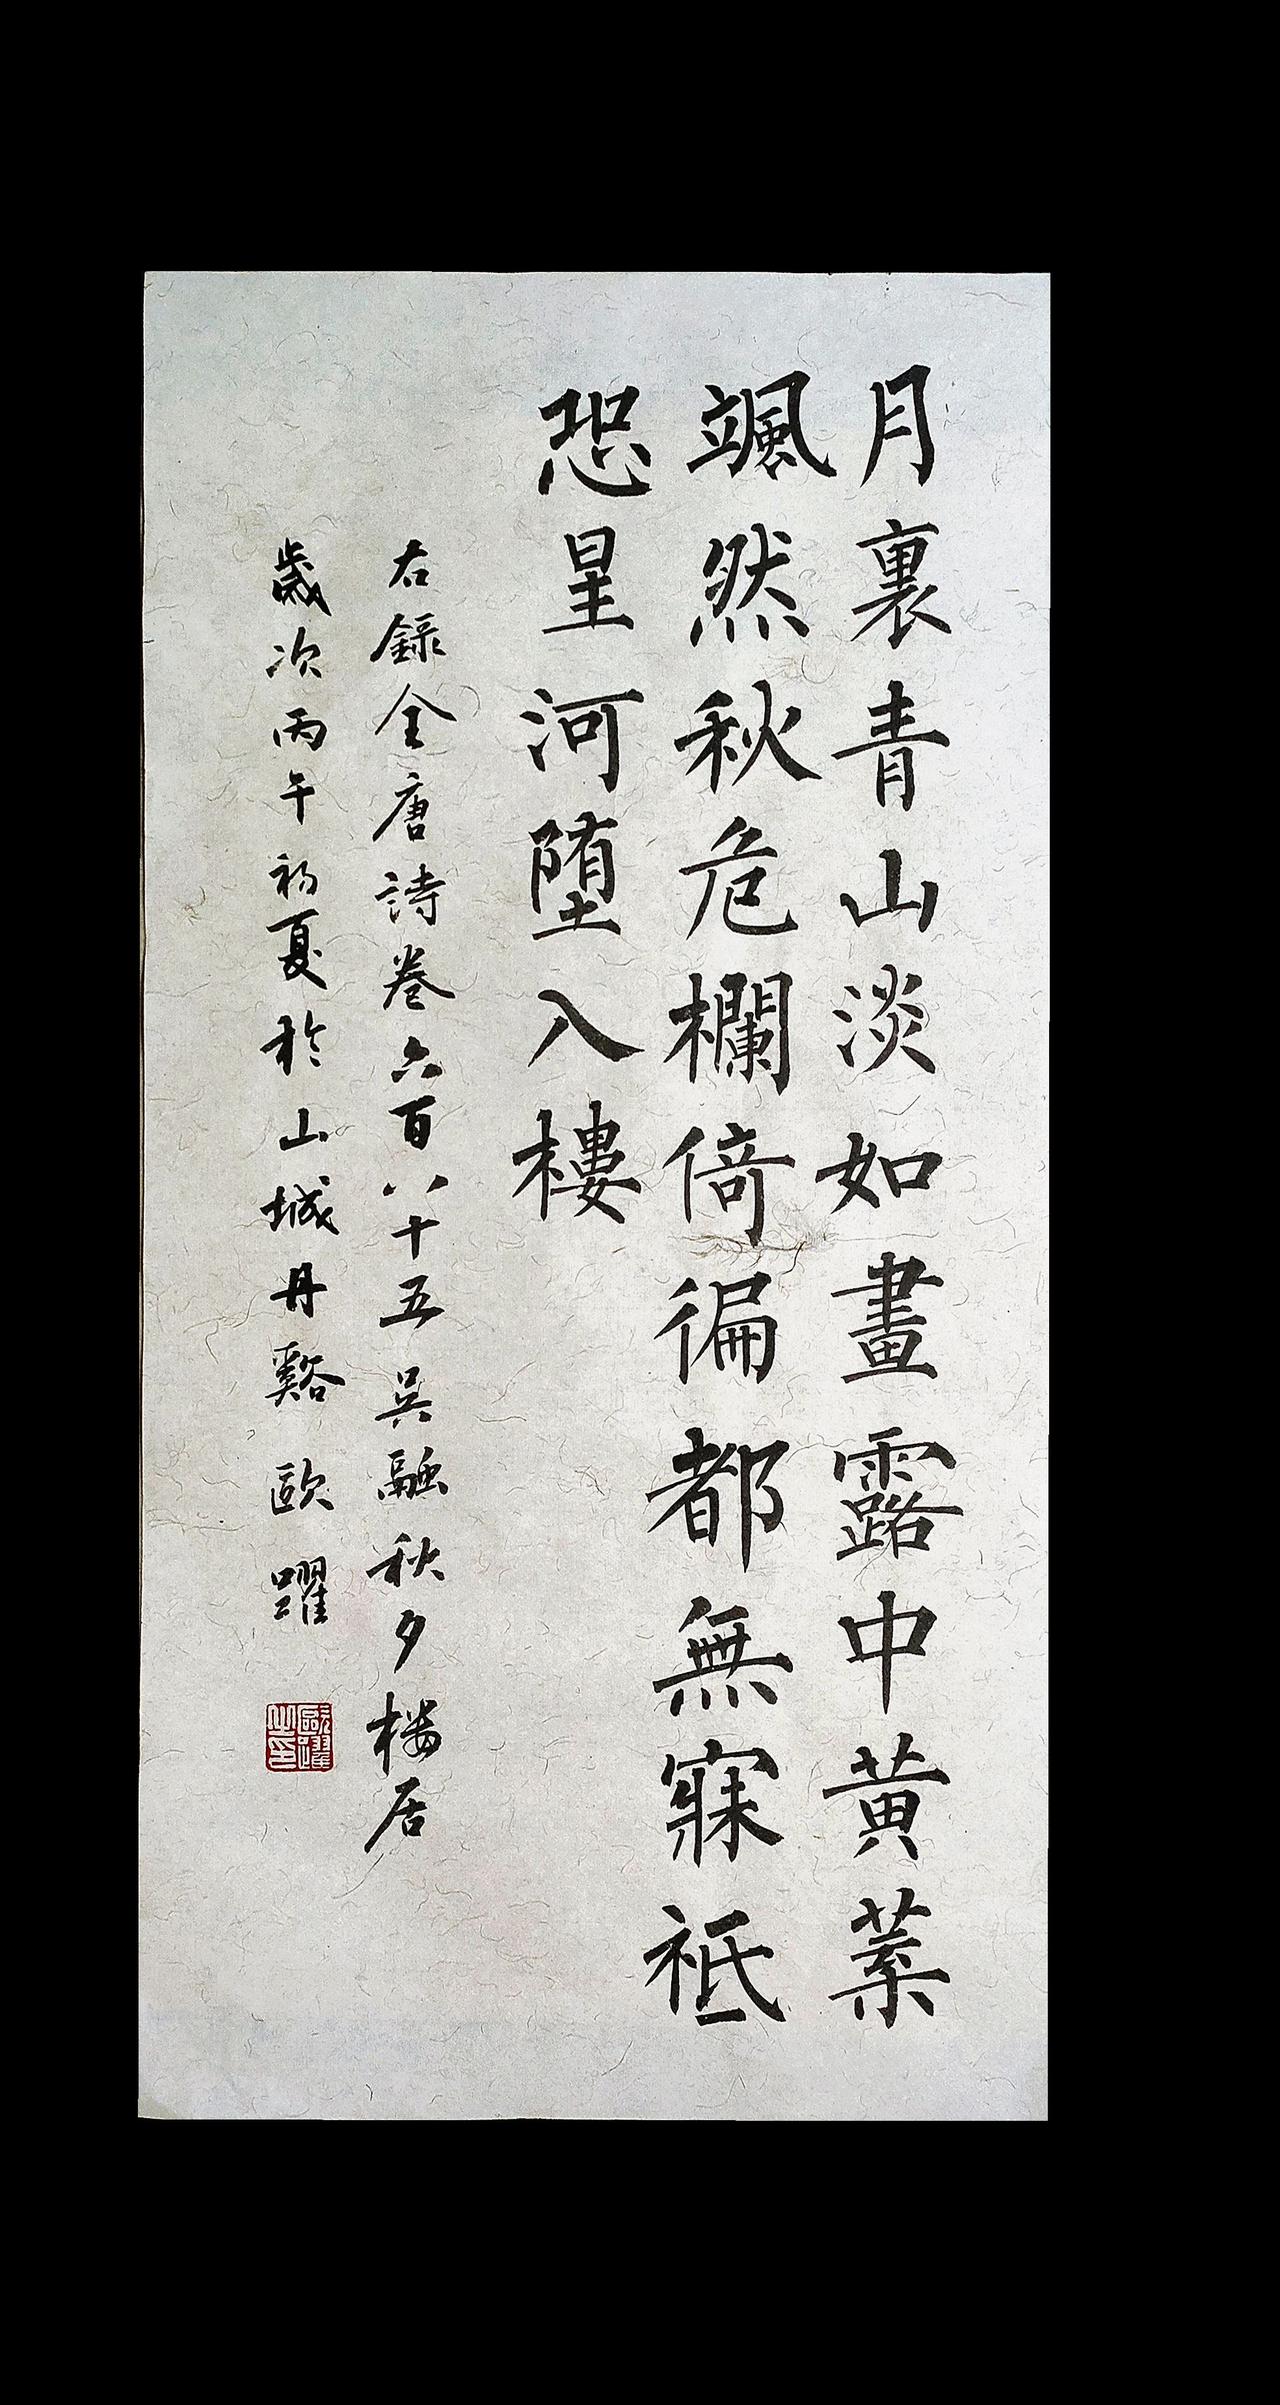 月裏青山淡如畫露中黃葉
颯然秋危欄倚徧都無寐祗
恐星河墮入樓
右錄全唐詩卷六百八十五吳融秋夕樓居
歲次丙午初夏於山城丹谿歐躍
歐躍之印